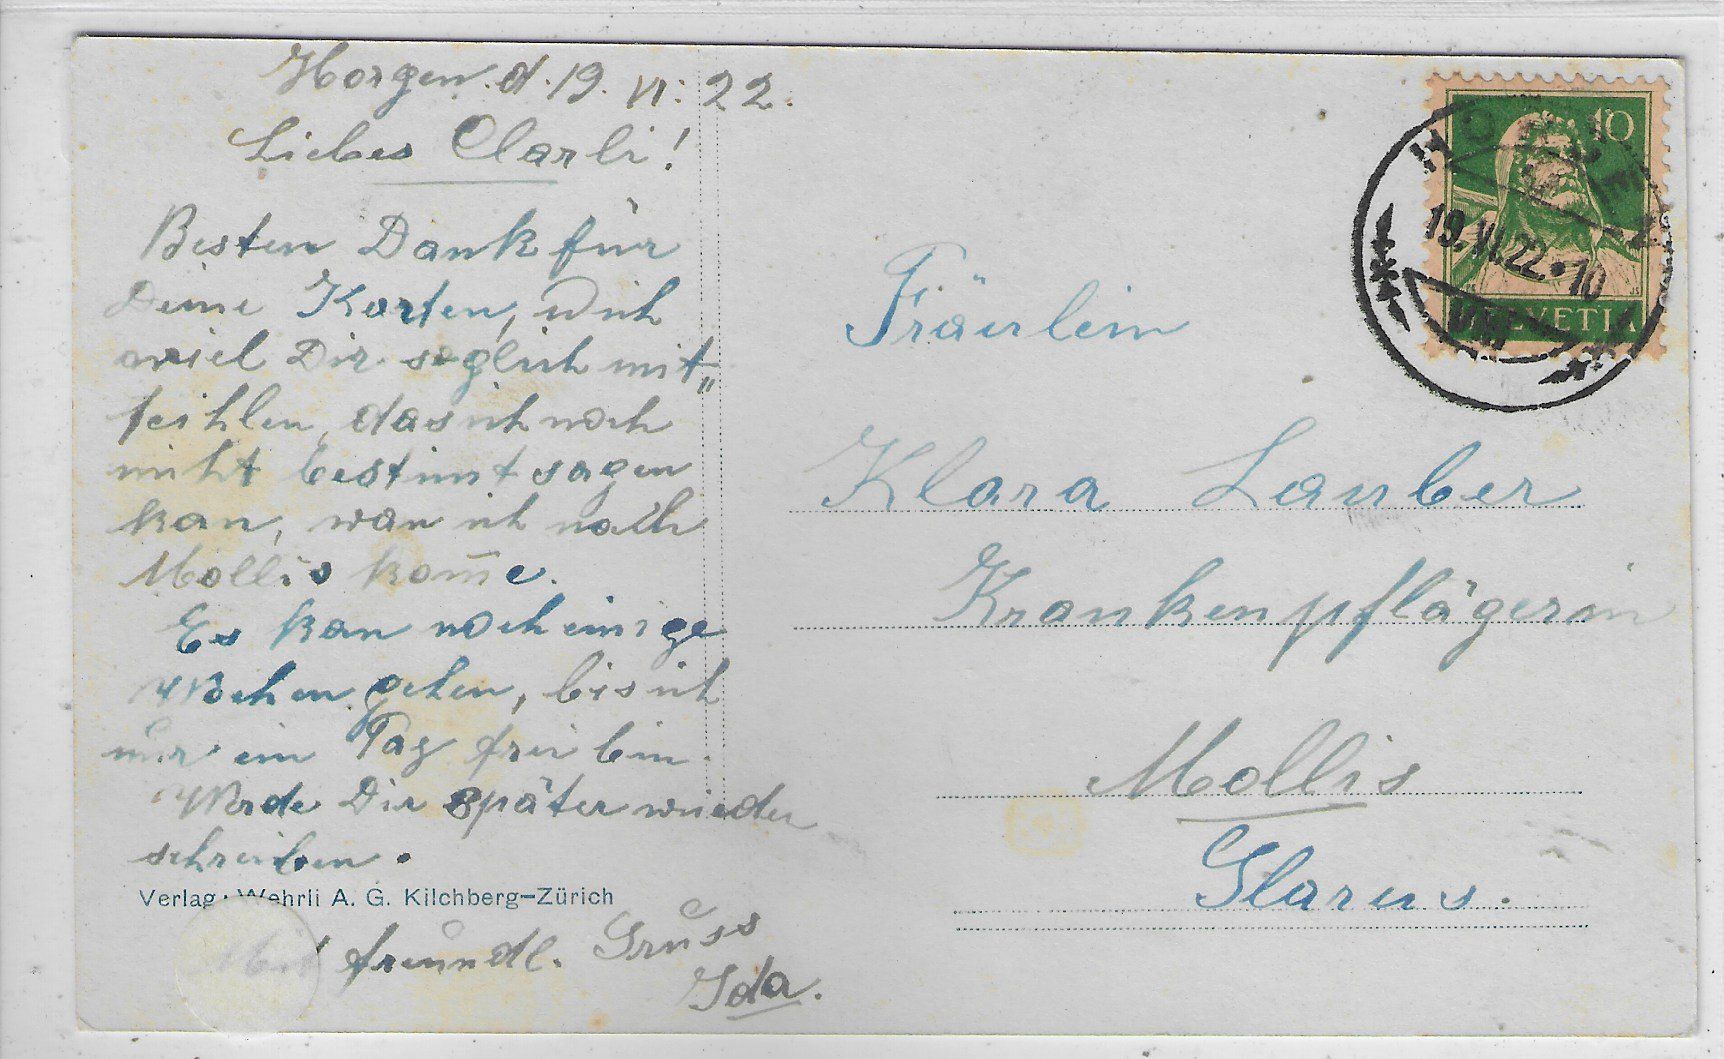 Horgen. d. 19. VI. 22.
Liebes Clarli!
Besten Dank für
Deine Karten, wich
wiel Dir soglich mit„
teihlen, das ich noch
nicht bestimt sagen
kan, wan ich nach
Mollis kom̄e.
Es kan noch einige
Wochen gehen, bis ich
nur ein Tag frei bin.
Werde Dir später wieder
schreiben.
Verlag: Wehrli A. G. Kilchberg–Zürich
Mit freundl. Gruss
Ida.
10
HORGEN
19.VI.22•10
HELVETIA
Fräulein
Klara Lauber
Krankenpflägerin
Mollis
Glarus.